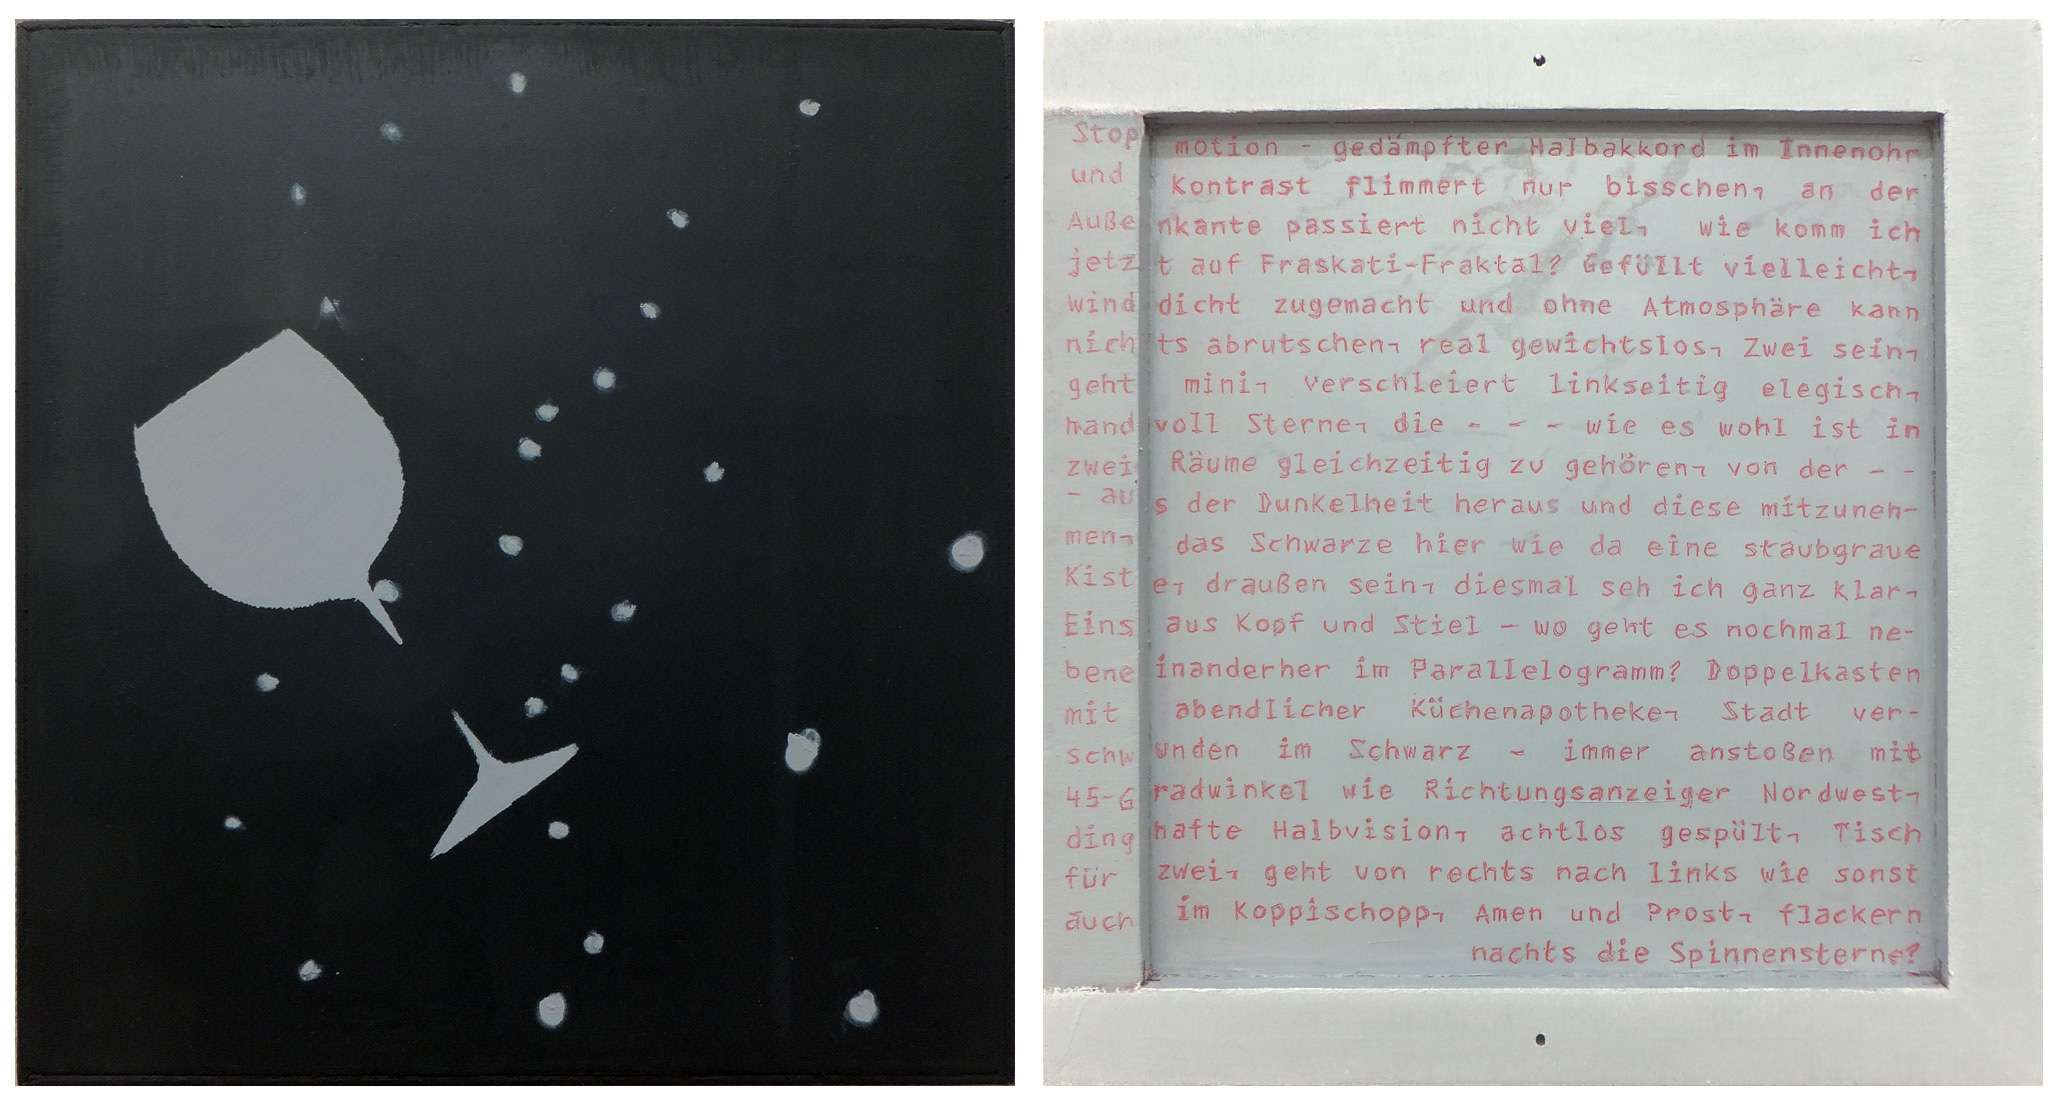 Stop motion - gedämpfter Halbakkord im Innenohr
und Kontrast flimmert nur bisschen, an der
Außenkante passiert nicht viel, wie komm ich
jetzt auf Fraskati-Fraktal? Gefüllt vielleicht,
winddicht zugemacht und ohne Atmosphäre kann
nichts abrutschen, real gewichtslos, Zwei sein,
geht mini, verschleiert linkseitig elegisch,
handvoll Sterne, die - - - wie es wohl ist in
zwei Räume gleichzeitig zu gehören, von der - -
- aus der Dunkelheit heraus und diese mitzuneh-
men, das Schwarze hier wie da eine staubgraue
Kiste, draußen sein, diesmal seh ich ganz klar,
Eins aus Kopf und Stiel - wo geht es nochmal ne-
beneinanderher im Parallelogramm? Doppelkasten
mit abendlicher Küchenapotheke, Stadt ver-
schwunden im Schwarz - immer anstoßen mit
45-Gradwinkel wie Richtungsanzeiger Nordwest,
dinghafte Halbvision, achtlos gespült, Tisch
für zwei, geht von rechts nach links wie sonst
auch im Koppischopp, Amen und Prost, flackern
nachts die Spinnensterne?